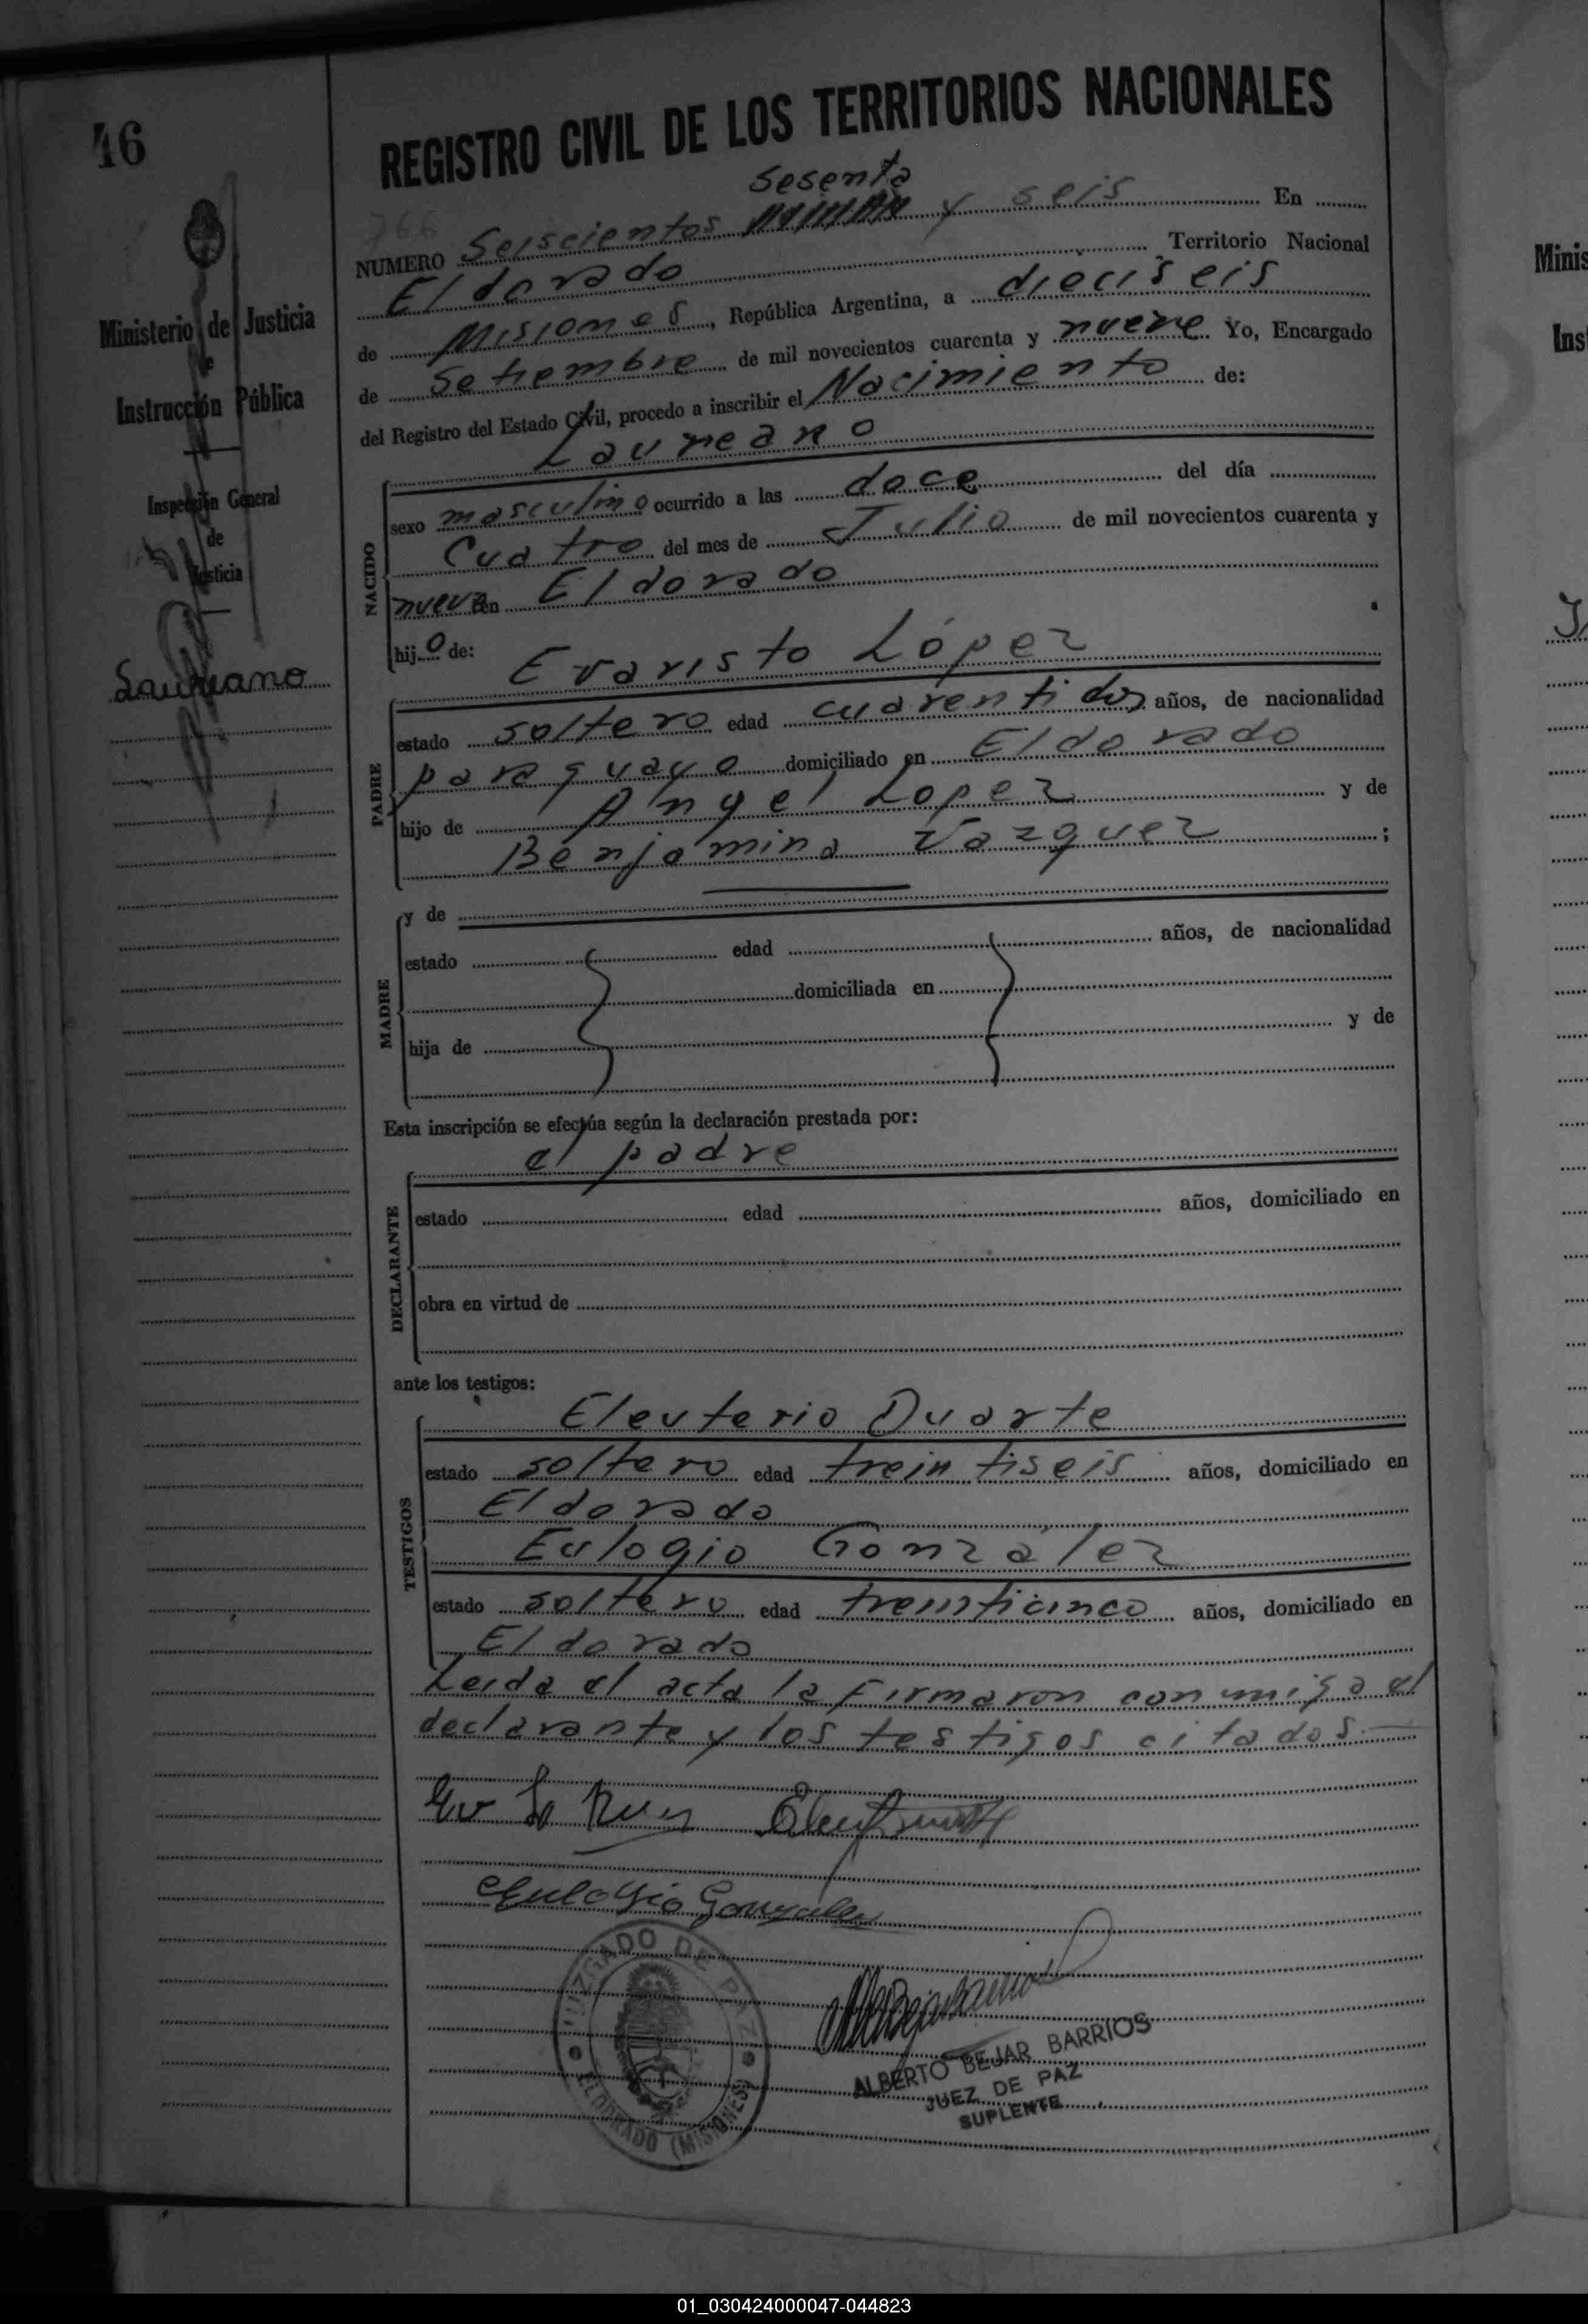 46
REGISTRO CIVIL DE LOS TERRITORIOS NACIONALES
Sesenta
766
NUMERO Seiscientos y seis En
Eldorado Territorio Nacional
de Misiones, República Argentina, a dieciseis
de Setiembre de mil novecientos cuarenta y nueve Yo, Encargado
del Registro del Estado Civil, procedo a inscribir el Nacimiento de:
Laureano
Ministerio de Justicia
e
Instrucción Pública
Inspección General
de
Justicia
Laureano
NACIDO
sexo masculino ocurrido a las doce del día
Cuatro del mes de Julio de mil novecientos cuarenta y
nueve en Eldorado
hijo de:
Evaristo López
PADRE
estado soltero edad cuarentidos años, de nacionalidad
paraguayo domiciliado en Eldorado
hijo de Angel Lopez y de
Benjamina Vazquez ;
MADRE
y de
estado edad años, de nacionalidad
domiciliada en
hija de y de
Esta inscripción se efectúa según la declaración prestada por:
el padre
DECLARANTE
estado edad años, domiciliado en
obra en virtud de
ante los testigos:
Eleuterio Duarte
TESTIGOS
estado soltero edad treintiseis años, domiciliado en
Eldorado
Eulogio González
estado soltero edad treinticinco años, domiciliado en
Eldorado
Leida el acta la firmaron conmigo el
declarante y los testigos citados.—
Eulogio Gonzalez
JUZGADO DE PAZ
ELDORADO (MISIONES)
ALBERTO BEJAR BARRIOS
JUEZ DE PAZ
SUPLENTE
Minis
Ins
01_030424000047-044823